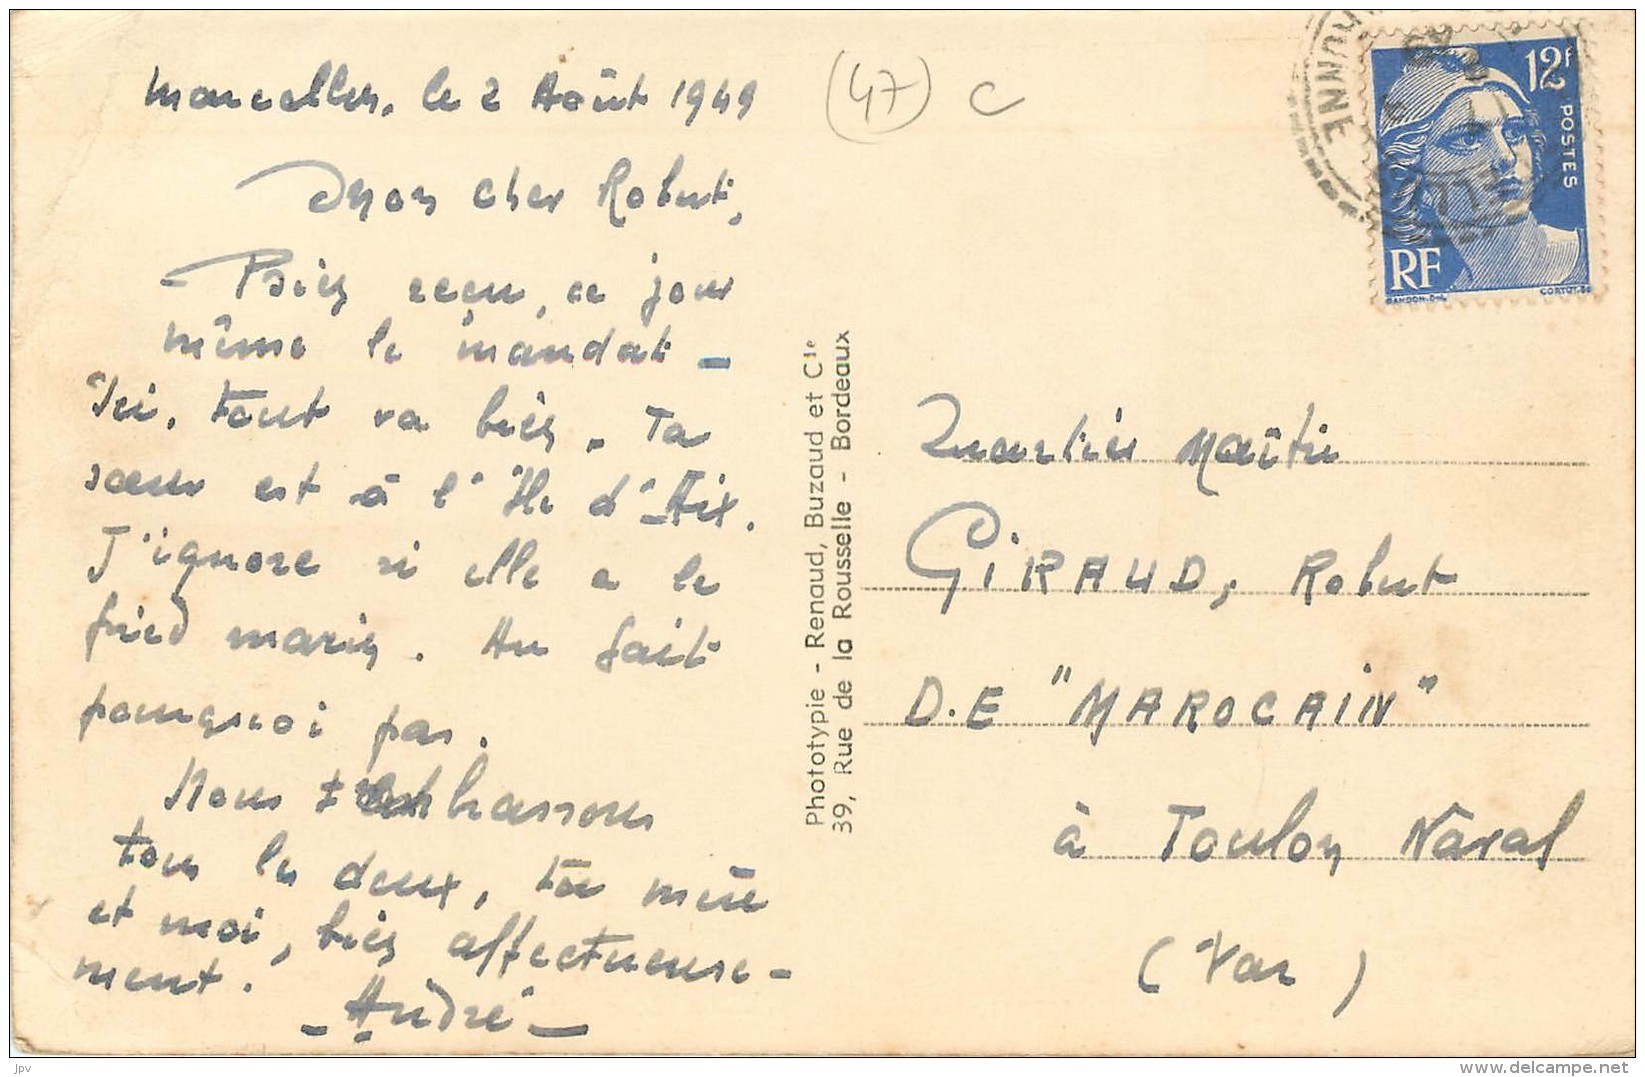 Marcellus, le 2 Août 1949
(47) C
Mon cher Robert,
Bien reçu, ce jour
même le mandat -
Ici, tout va bien. Ta
sœur est à l'Ile d'Aix.
J'ignore si elle a le
pied marin. Au fait
pourquoi pas.
Nous t'embrassons
tous les deux, ta mère
et moi, bien affectueuse-
ment.
- André -
Phototypie - Renaud, Buzaud et Cie
39, Rue de la Rousselle - Bordeaux
12F
POSTES
RF
GANDON. DEL
CORTOT. SC
Quartier Maître
GIRAUD, Robert
D.E "MAROCAIN"
à Toulon Naval
(Var)
jpv
www.delcampe.net